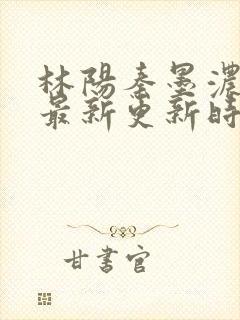 林陽秦墨濃
最新更新時
甘書官